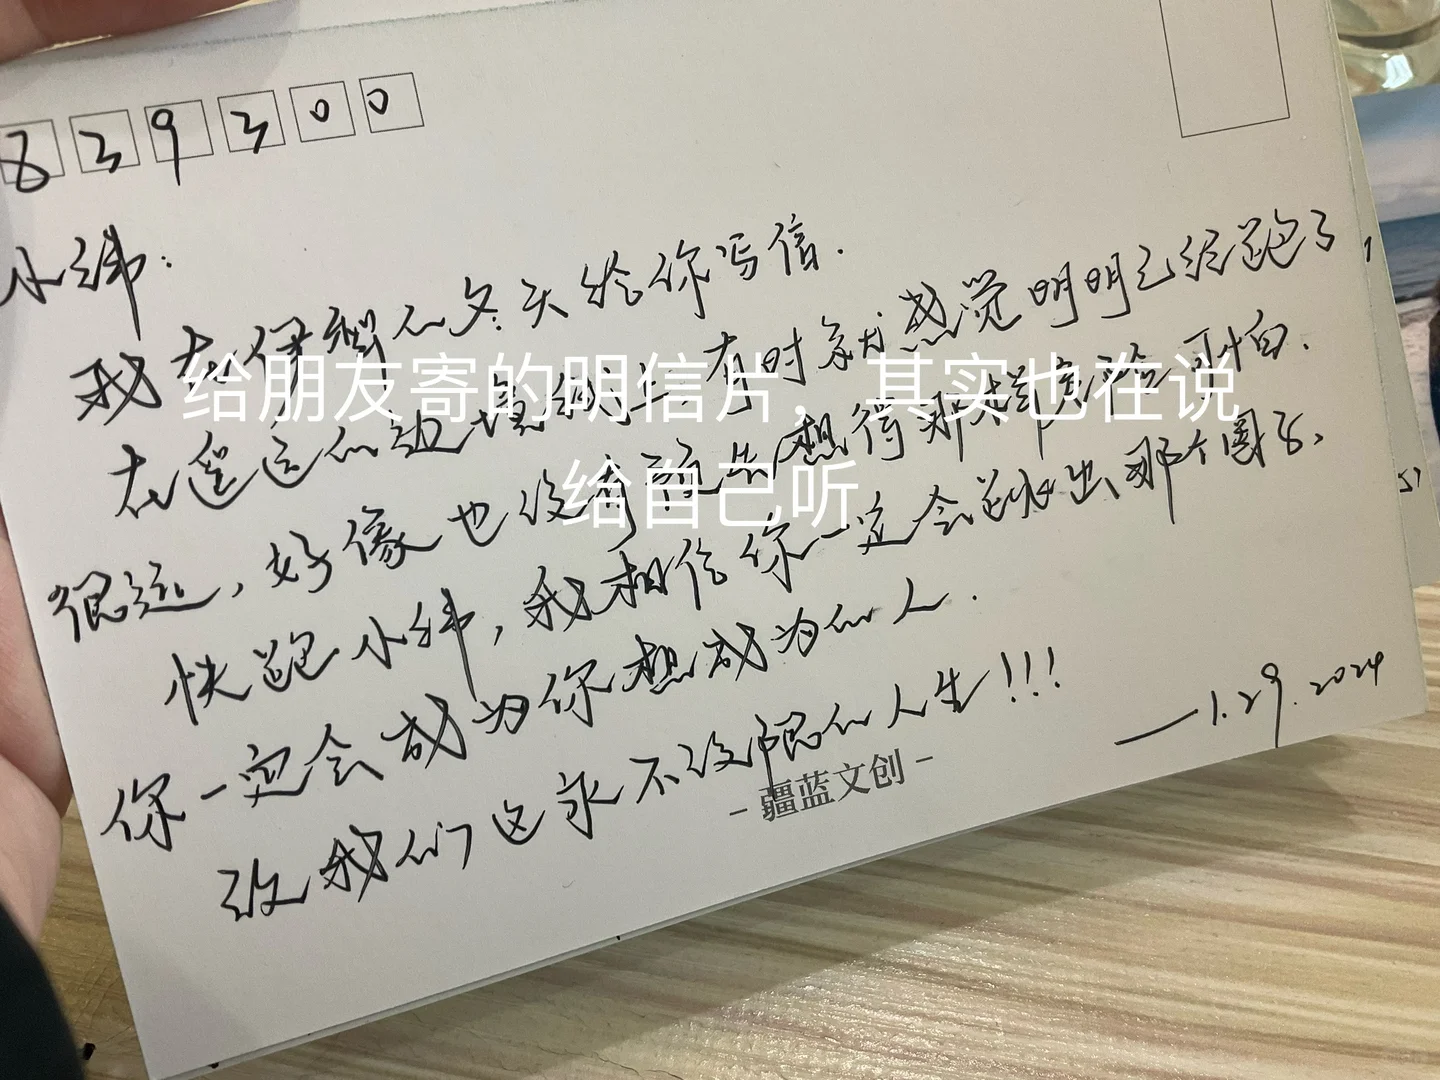 839300
小纬：
我在伊犁的冬天给你写信.
在遥远的边境线上 有时就感觉明明已经跑了
很远，好像也没有预先想得那样危险可怕.
快跑小纬，我相信你一定会跳出那个圈子、
你一定会成为你想成为的人.
致我们这永不设限的人生!!!
——1.29.2024
-疆蓝文创-
给朋友寄的明信片，其实也在说
给自己听